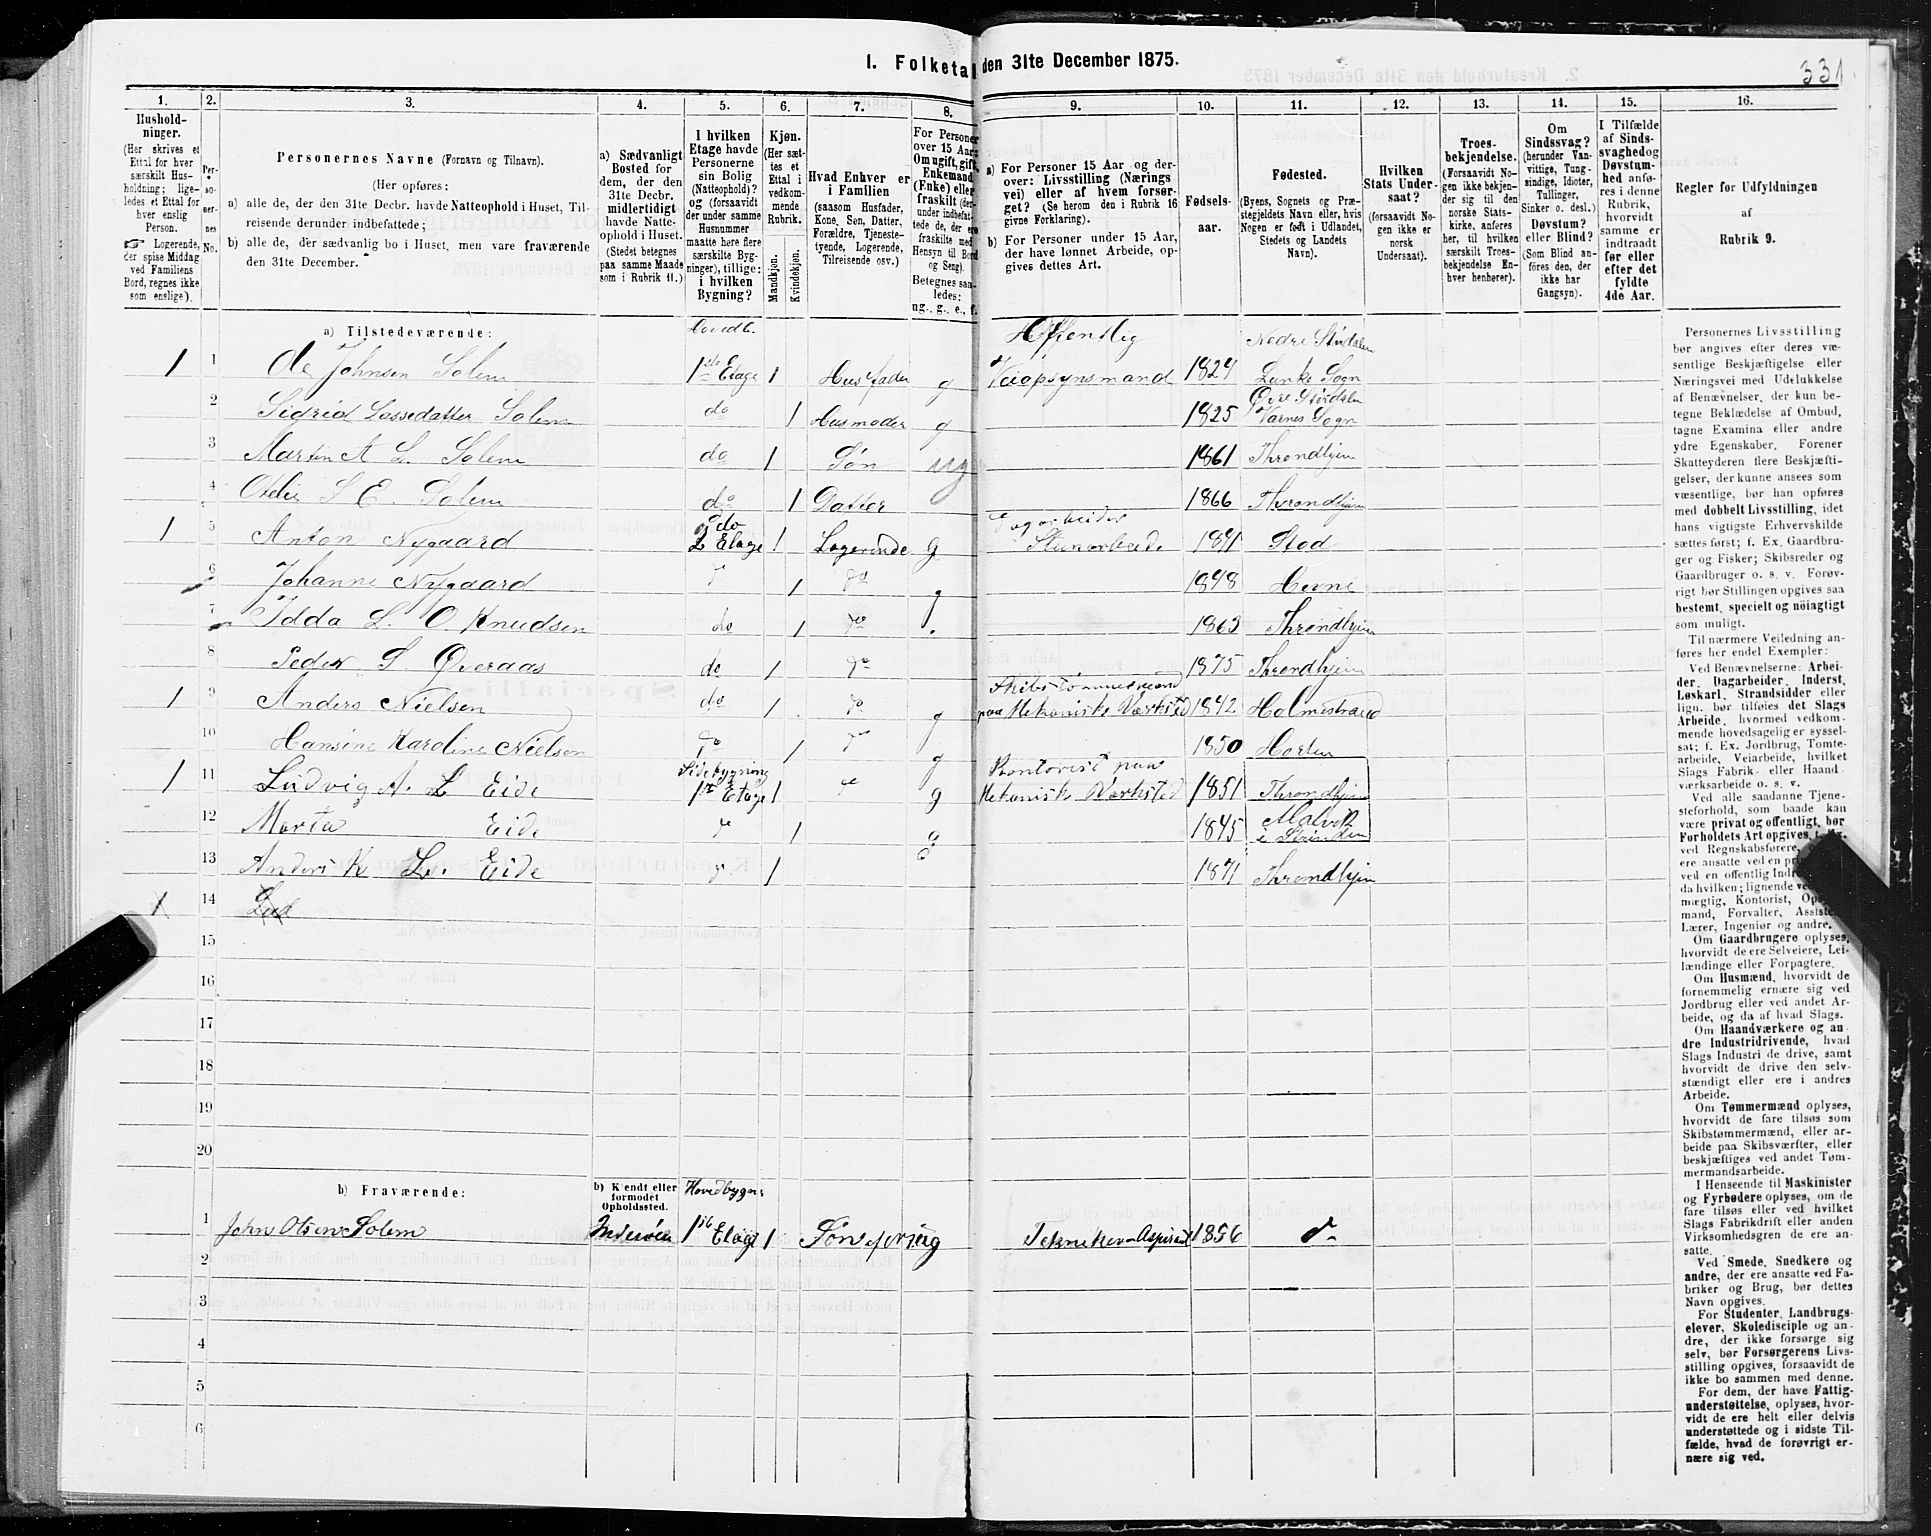 I. Folketal den 31te December 1875.
331.
1. 2. 3. 4. 5. 6. 7. 8. 9. 10. 11. 12. 13. 14. 15. 16.
Hushold-
ninger.
(Her skrives et
Ettal for hver
særskilt Hus-
holdning; lige-
ledes et Ettal for
hver enslig
Person.
☞ Logerende,
der spise Middag
ved Familiens
Bord, regnes ikke
som enslige).
Per-
so-
ner-
nes
No.
Personernes Navne (Fornavn og Tilnavn).
(Her opføres:
a) alle de, der den 31te Decbr. havde Natteophold i Huset, Til-
reisende derunder indbefattede;
b) alle de, der sædvanlig bo i Huset, men vare fraværende
den 31te December.
a) Sædvanligt
Bosted for
dem, der den
31te Decbr.
midlertidigt
havde Natte-
ophold i Huset.
(Stedet betegnes
paa samme Maade
som i Rubrik 11.)
I hvilken
Etage havde
Personerne
sin Bolig
(Natteophold)?
og (forsaavidt
der under samme
Husnummer
maatte høre flere
særskilte Byg-
ninger), tillige:
i hvilken
Bygning?
Kjøn.
(Her sæt-
tes et
Ettal i
vedkom-
mende
Rubrik.
Mandkjøn.
Kvindekjøn.
Hvad Enhver er
i Familien
(saasom Husfader,
Kone, Søn, Datter,
Forældre, Tjeneste-
tyende, Logerende,
Tilreisende osv.)
For Personer
over 15 Aar:
Om ugift, gift,
Enkemand
(Enke) eller
fraskilt (der-
under indbefat-
tede de, der ere
fraskilte med
Hensyn til Bord
og Seng).
Betegnes saa-
ledes:
ug., g., e., f.
a) For Personer 15 Aar og der-
over: Livsstilling (Nærings-
vei) eller af hvem forsør-
get? (Se herom den i Rubrik 16
givne Forklaring).
b) For Personer under 15 Aar,
der have lønnet Arbeide, op-
gives dettes Art.
Fødsels-
aar.
Fødested.
(Byens, Sognets og Præ-
stegjeldets Navn eller, hvis
Nogen er født i Udlandet,
Stedets og Landets
Navn).
Hvilken
Stats Under-
saat?
(forsaavidt No-
gen ikke er
norsk
Undersaat).
Troes-
bekjendelse.
(Forsaavidt No-
gen ikke bekjen-
der sig til den
norske Stats-
kirke, anføres
her, til hvilken
særskilt Troes-
bekjendelse En-
hver henhører).
Om
Sindssvag?
(herunder Van-
vittige, Tung-
sindige, Idioter,
Tullinger,
Sinker o. desl.)
Døvstum?
eller Blind?
(Som Blind an-
føres den, der
ikke har
Gangsyn).
I Tilfælde
af Sinds-
svaghed og
Døvstum-
hed anfø-
res i denne
Rubrik,
hvorvidt
samme er
indtraadt
før eller
efter det
fyldte
4de Aar.
Regler for Udfyldningen
af
Rubrik 9.
a) Tilstedeværende:
Hovedb. Offentlig Nedre Stjørdalen
1 1 Ole Johnsen Solem 1ste Etage 1 Husfader g Veiopsynsmand 1824 Lanke Sogn
Øvre Størdalen
2 Sigrid Lassedatter Solem do 1 Husmoder g 1825 Værnes Sogn
3 Martin A L. Solem do 1 Søn ug 1861 Throndhjem
4 Otelie S E. Solem do 1 Datter 1866 Throndhjem
do Jagarbeider
1 5 Anton Nygaard 2 Etage 1 Logerende g Stenarbeide 1841 Stod
6 Johanne Nygaard " 1 do g 1848 Hevne
7 Idda L. O. Knudsen do 1 do . 1863 Throndhjem
8 Peder S. Øveraas do 1 do 1875 Throndhjem
Skibstømmermand
1 9 Anders Nielsen do 1 do g paa Mekaniske Værksted 1842 Holmestrand
10 Hansine Karoline Nielsen do 1 do g 1850 Horten
Sidebygning Kontorist paa
1 11 Ludvig A. L Eide 1ste Etage 1 do g Mekanisk Værksted 1851 Throndhjem
12 Marta Eide do 1 g 1845 Malvik i Strinden
13 Anders K L. Eide do 1 1871 Throndhjem
1 14 Lud
15
16
17
18
19
20
b) Fraværende:
b) Kjendt eller
formodet
Opholdssted.
Hovedbygn:
1 John Olsen Solem Inderøen 1ste Etage 1 Søn ug Tekniker-Aspirant 1856 do
2
3
4
5
6
Personernes Livsstilling
bør angives efter deres væ-
sentlige Beskjæftigelse eller
Næringsvei med Udelukkelse
af Benævnelser, der kun be-
tegne Beklædelse af Ombud,
tagne Examina eller andre
ydre Egenskaber. Forener
Skatteyderen flere Beskjæfti-
gelser, der kunne ansees som
væsentlige, bør han opføres
med dobbelt Livsstilling, idet
hans vigtigste Erhvervskilde
sættes først; f. Ex. Gaardbru-
ger og Fisker; Skibsreder og
Gaardbruger o. s. v. Forøv-
rigt bør Stillingen opgives saa
bestemt, specielt og nöiagtigt
som muligt.
Til nærmere Veiledning an-
føres her endel Exempler:
Ved Benævnelserne: Arbei-
der, Dagarbeider, Inderst,
Løskarl, Strandsidder eller
lign. bør tilføies det Slags
Arbeide, hvormed vedkom-
mende hovedsagelig er syssel-
sat; f. Ex. Jordbrug, Tomte-
arbeide, Veiarbeide, hvilket
Slags Fabrik- eller Haand-
værksarbeide o. s. v.
Ved alle saadanne Tjene-
steforhold, som baade kan
være privat og offentligt, bør
Forholdets Art opgives,
ved Regnskabsførere,
ere ansatte ved en
ved en offentlig
da hvilken; lignende
mægtig, Kontorist,
mand, Forvalter,
Lærer, Ingeniør og andre.
Om Gaardbrugere oplyses,
hvorvidt de ere Selveiere, Lei-
lændinge eller Forpagtere.
Om Husmænd, hvorvidt de
fornemmelig ernære sig ved
Jordbrug eller ved andet Ar-
beide, og da af hvad Slags.
Om Haandværkere og an-
dre Industridrivende, hvad
Slags Industri de drive, samt
hvorvidt de drive den selv-
stændigt eller ere i andres
Arbeide.
Om Tømmermænd oplyses,
hvorvidt de fare tilsøs som
Skibstømmermænd, eller ar-
beide paa Skibsværfter, eller
beskjæftiges ved andet Tøm-
mermandsarbeide.
I Henseende til Maskinister
og Fyrbødere oplyses, om de
fare tilsøs eller ved hvilket
Slags Fabrikdrift eller anden
Virksomhedsgren de ere an-
satte.
Ved Smede, Snedkere og
andre, der ere ansatte ved Fa-
briker og Brug, bør dettes
Navn opgives.
For Studenter, Landbrugs-
elever, Skoledisciple og an-
dre, der ikke forsørge sig
selv, bør Forsørgerens Livs-
stilling opgives, forsaavidt de
ikke bo sammen med denne.
For dem, der have Fattig-
understøttelse, oplyses, hvor-
vidt de ere helt eller delvis
understøttede og i sidste Til-
fælde, hvad de forøvrigt er-
nære sig ved.